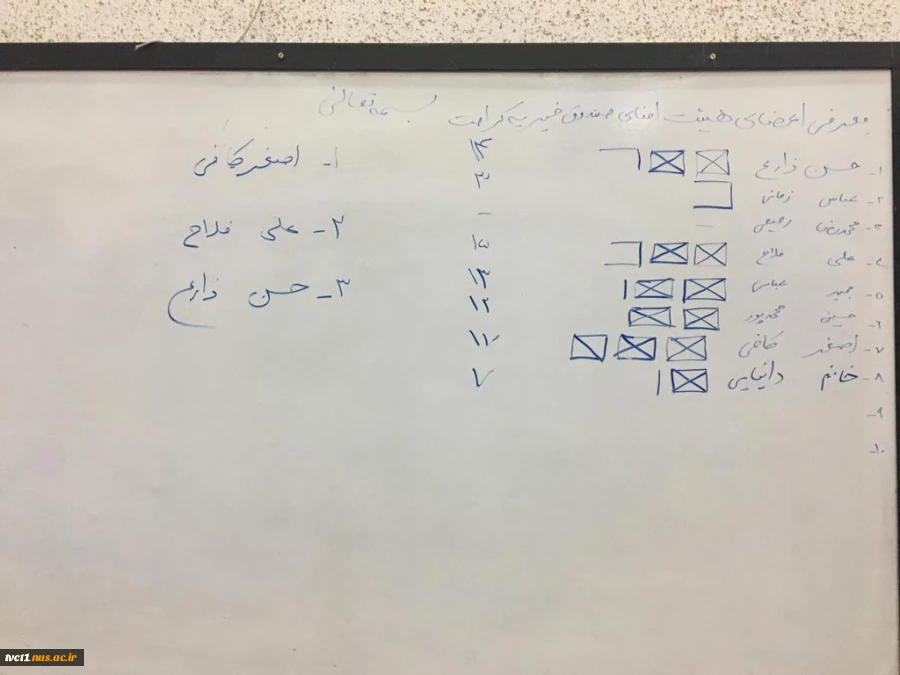 بسمه تعالی
معرفی اعضای هیئت امنای صندوق خیریه کرامت
۱- حسن زارع ۱۴
۲- عباس زمانی ۳
۳- محمدرضا رحیمی -
۴- علی فلاح ۱۵
۵- حمید عباسی ۱۳
۶- حسین محمدپور ۱۲
۷- اصغر کافی ۱۷
۸- خانم دانیایی ۷
۹-
۱۰-
۱- اصغر کافی
۲- علی فلاح
۳- حسن زارع
tvct1.nus.ac.ir